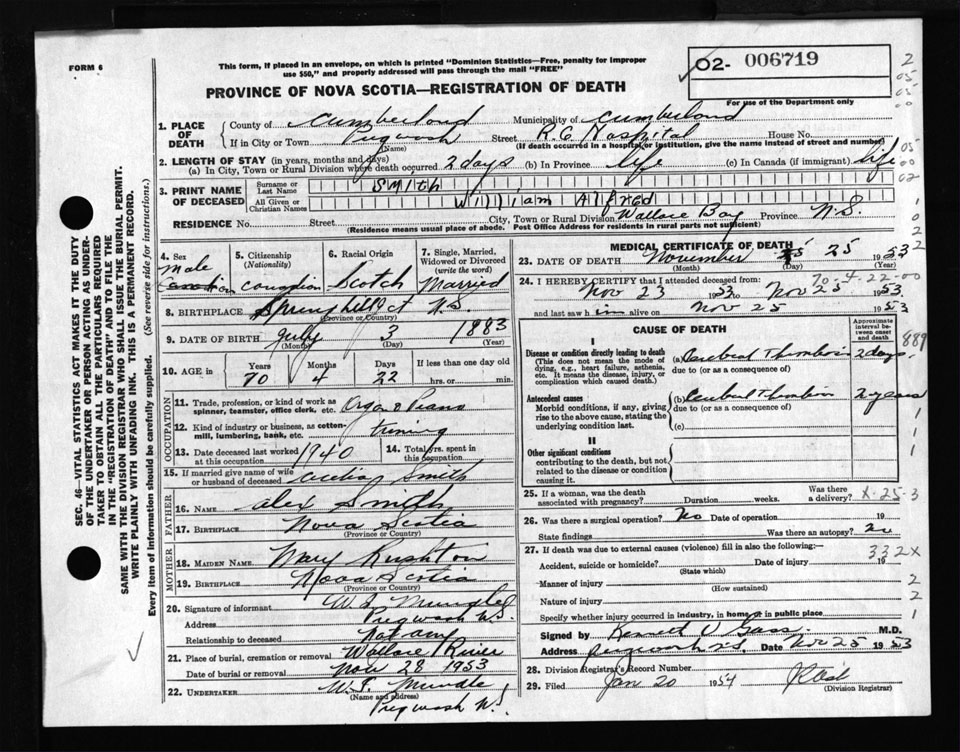 FORM 6
This form, if placed in an envelope, on which is printed "Dominion Statistics—Free, penalty for improper
use $50," and properly addressed will pass through the mail "FREE"
02- 006719
For use of the Department only
PROVINCE OF NOVA SCOTIA—REGISTRATION OF DEATH
1. PLACE OF DEATH County of Cumberland Municipality of Cumberland
If in City or Town Pugwash Street R.C. Hospital House No.
(Name) (If death occurred in a hospital or institution, give the name instead of street and number)
2. LENGTH OF STAY (in years, months and days)
(a) In City, Town or Rural Division where death occurred 2 days (b) In Province life (c) In Canada (if immigrant) life
3. PRINT NAME OF DECEASED Surname or Last Name Smith
All Given or Christian Names William Alfred
RESIDENCE No. Street City, Town or Rural Division Wallace Bay Province N.S.
(Residence means usual place of abode. Post Office Address for residents in rural parts not sufficient)
4. Sex Male
5. Citizenship (Nationality) Canadian
6. Racial Origin Scotch
7. Single, Married, Widowed or Divorced (write the word) Married
8. BIRTHPLACE Springhill N.S.
(Province or Country)
9. DATE OF BIRTH July 3 1883
(Month) (Day) (Year)
10. AGE in Years Months Days If less than one day old
70 4 22 hrs. or min.
OCCUPATION
11. Trade, profession, or kind of work as spinner, teamster, office clerk, etc. Organ & Piano
12. Kind of industry or business, as cotton-mill, lumbering, bank, etc. tuning
13. Date deceased last worked at this occupation 1940 14. Total yrs. spent in this occupation
15. If married give name of wife or husband of deceased Smith
FATHER
16. NAME Alex Smith
17. BIRTHPLACE Nova Scotia
(Province or Country)
MOTHER
18. MAIDEN NAME Mary Rushton
19. BIRTHPLACE Nova Scotia
(Province or Country)
20. Signature of informant
Address Pugwash N.S.
Relationship to deceased Not any
21. Place of burial, cremation or removal Wallace River
Date of burial or removal Nov 28 1953
22. UNDERTAKER
(Name and address) Pugwash N.S.
MEDICAL CERTIFICATE OF DEATH
23. DATE OF DEATH November 25 1953
(Month) (Day) (Year)
24. I HEREBY CERTIFY that I attended deceased from:
70-4-22-00
Nov 23 1953 to Nov 25 1953
and last saw him alive on Nov 25 1953
CAUSE OF DEATH
Approximate interval between onset and death
I
Disease or condition directly leading to death (a) Cerebral Thrombosis 2 days
(This does not mean the mode of dying, e.g., heart failure, asthenia, etc. It means the disease, injury, or complication which caused death.)
due to (or as a consequence of)
Antecedent causes (b) Cerebral Thrombosis 2 years
Morbid conditions, if any, giving rise to the above cause, stating the underlying condition last.
due to (or as a consequence of)
(c)
II
Other significant conditions
contributing to the death, but not related to the disease or condition causing it.
25. If a woman, was the death associated with pregnancy? Duration weeks. Was there a delivery? X-25-3
26. Was there a surgical operation? No Date of operation 19
State findings Was there an autopsy? no
27. If death was due to external causes (violence) fill in also the following:— 332X
Accident, suicide or homicide? Date of injury 19
(State which)
Manner of injury
(How sustained)
Nature of injury
Specify whether injury occurred in industry, in home or in public place
Signed by Kenneth V Gass M.D.
Address Pugwash N.S. Date Nov 25 1953
28. Division Registrar's Record Number
29. Filed Jan 20 1954
(Division Registrar)
SEC. 46—VITAL STATISTICS ACT MAKES IT THE DUTY
OF THE UNDERTAKER OR PERSON ACTING AS UNDER-
TAKER TO OBTAIN ALL THE PARTICULARS REQUIRED
IN THE "REGISTRATION OF DEATH" AND TO FILE THE
SAME WITH THE DIVISION REGISTRAR WHO SHALL ISSUE THE BURIAL PERMIT.
WRITE PLAINLY WITH UNFADING INK. THIS IS A PERMANENT RECORD.
Every item of information should be carefully supplied. (See reverse side for instructions.)